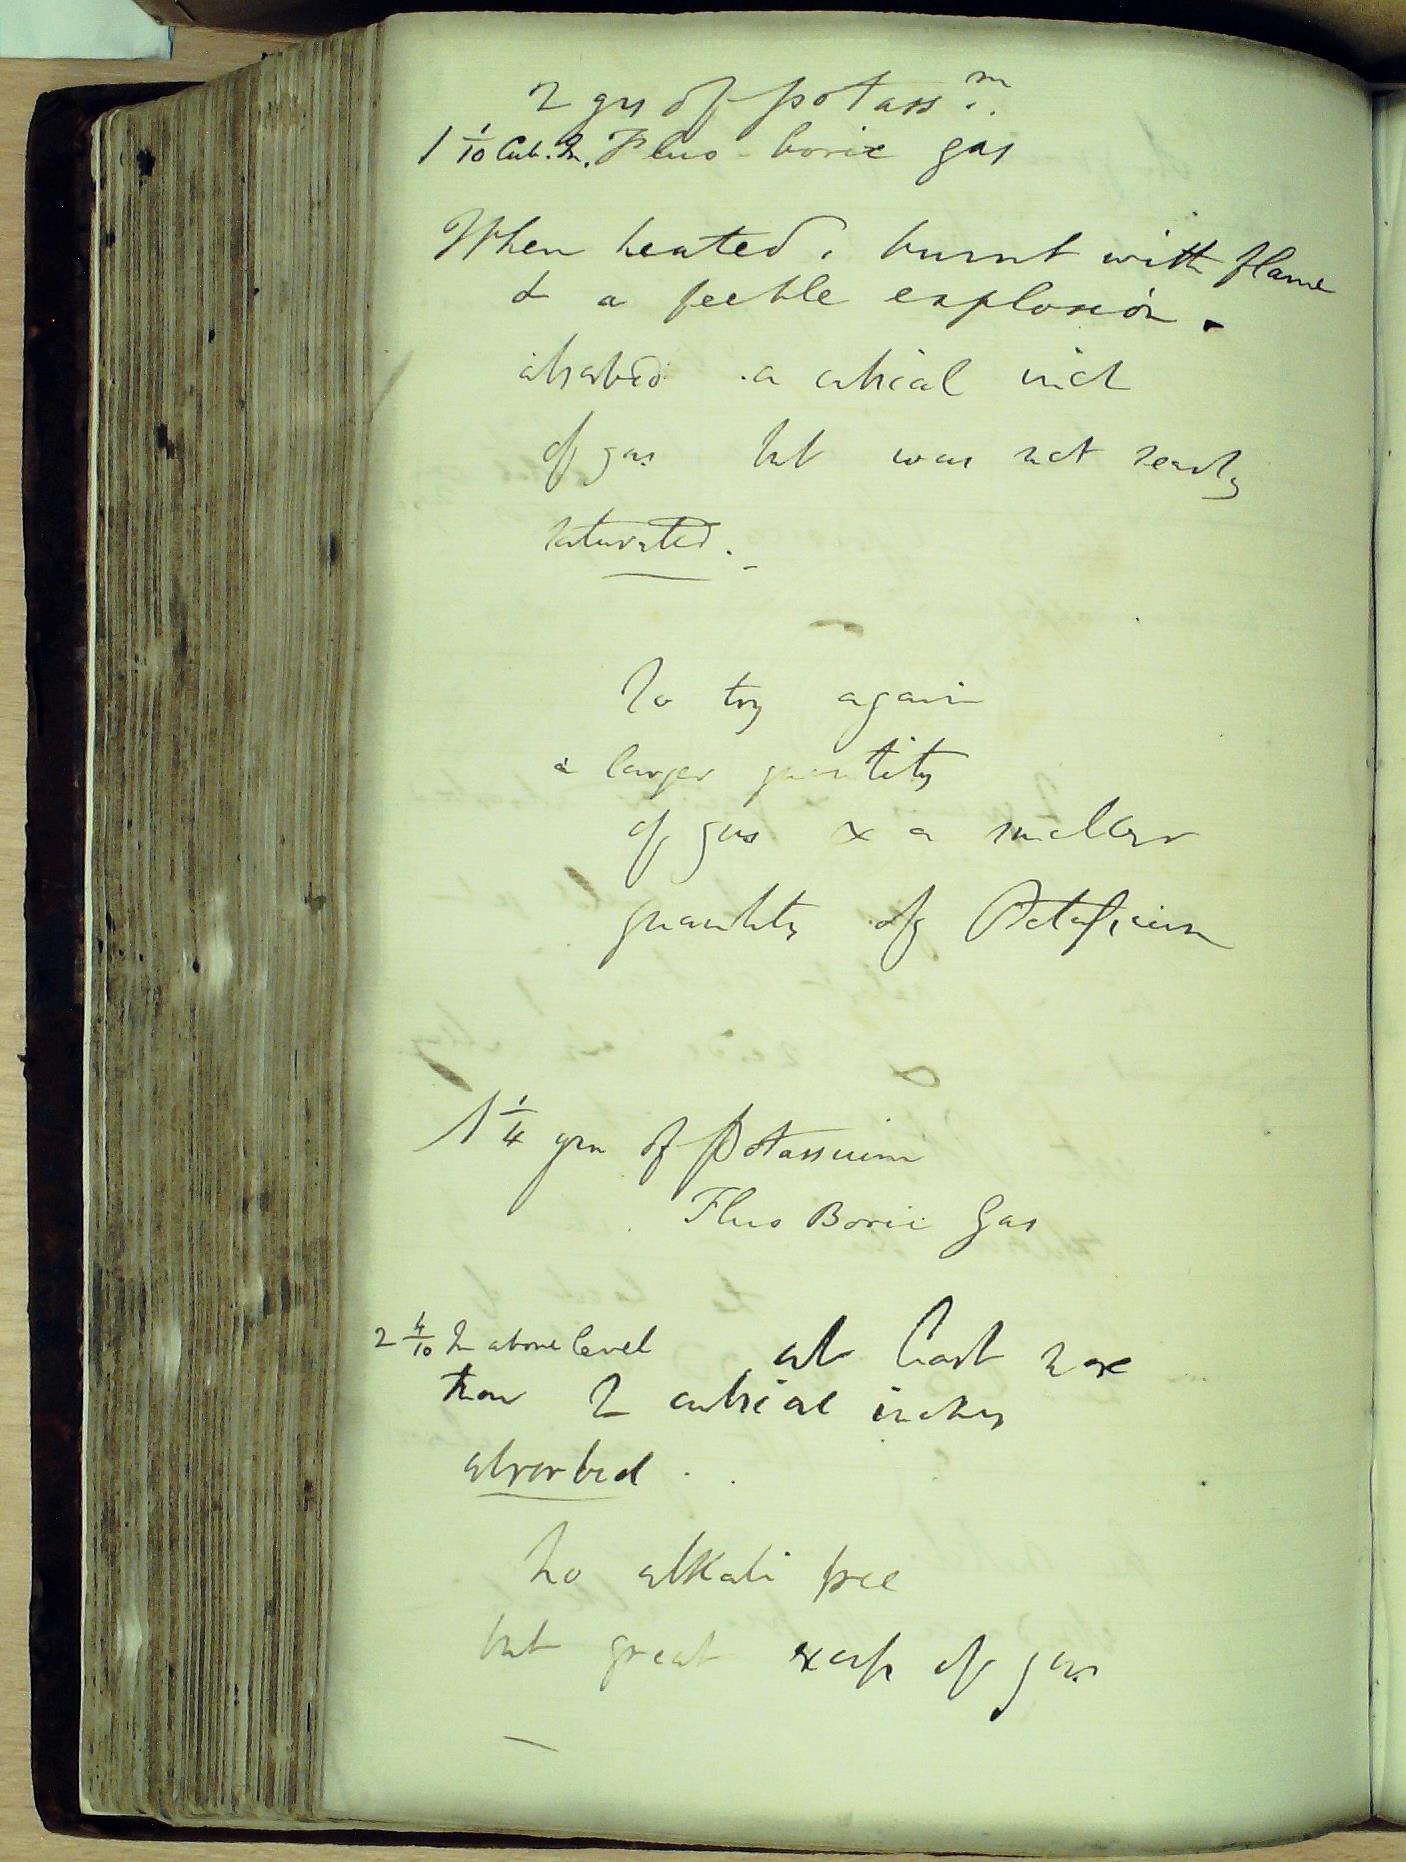 2 grs of potass.m
1 1/10 Cub. In. Fluo-boric gas
When heated, burnt with flame
& a feeble explosion.
absorbed a cubical inch
of gas but was not nearly
saturated.
To try again
a larger quantity
of gas & a smaller
quantity of Potassium
1 1/4 grn of Potassium
Fluo Boric Gas
2 4/10 In above level at least more
than 2 cubical inches
absorbed.
No alkali free
but great excess of gas